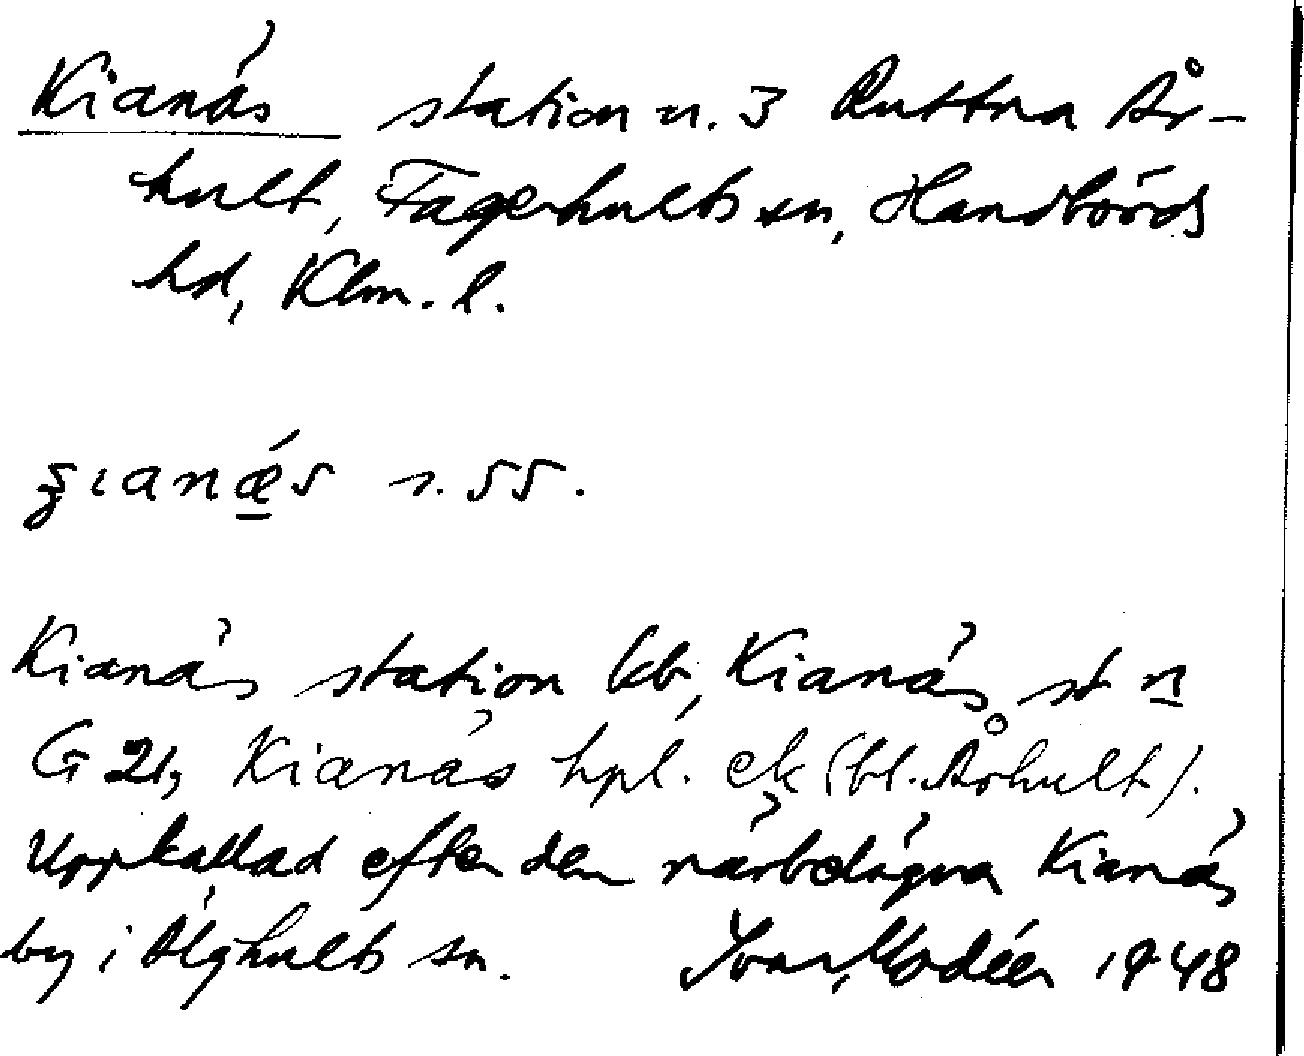 Kianäs station u. 3 Ruttna År-
hult, Fagerhults sn, Handbörds
hd, Klm. l.
s. 55.
Kianäs station kb, Kianäs st n
G 21, Kianäs hpl. ek (bl. Århult).
Uppkallad efter den närbelägna Kianäs
by i Älghults sn. Ivar Modéer 1948